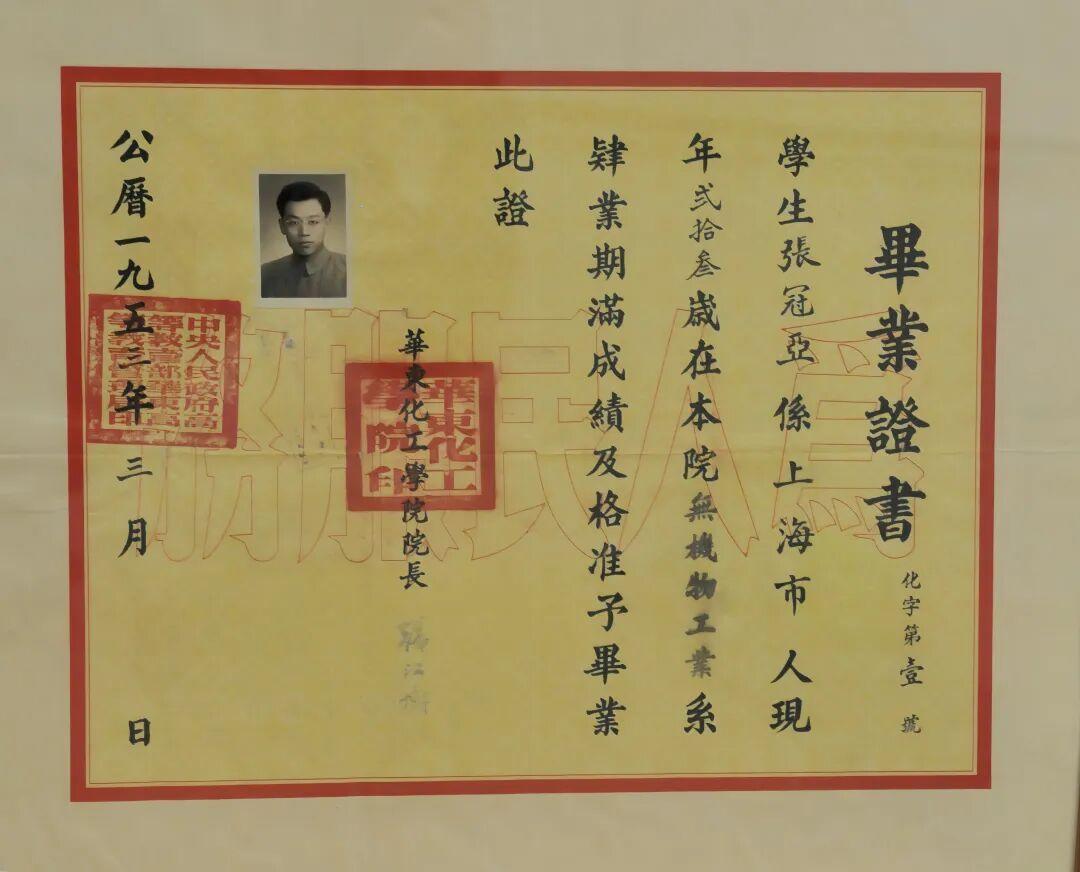 畢業證書
化字第壹號
學生張冠亞係上海市人現
年弍拾叁歲在本院無機物工業系
肄業期滿成績及格准予畢業
此證
華東化工學院院長
華東化工
學院印
公曆一九五三年三月 日
中央人民政府高
等教育部華東高
等教育管理局印
爲人民服務